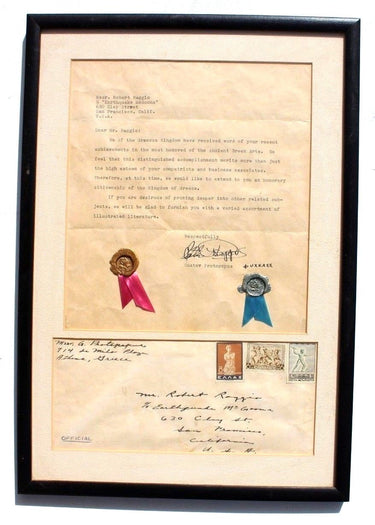 Messr. Robert Roggio
% "Earthquake McGoons"
630 Clay Street
San Francisco, Calif.
U.S.A.
Dear Mr. Roggio:
We of the Grecian Kingdom have received word of your recent
achievements in the most honored of the Ancient Greek Arts. We
feel that this distinguished accomplishment merits more than just
the high esteem of your compatriots and business associates.
Therefore, at this time, we would like to extend to you an honorary
citizenship of the Kingdom of Greece.
If you are desirous of probing deeper into other related sub-
jects, we will be glad to furnish you with a varied assortment of
illustrated literature.
Respectfully
Gustav
Messr. G.
714 de Milo
Athens, Greece
ΕΛΛΑΣ
Mr. Robert Roggio
% Earthquake McGoons
630 Clay St.
San Francisco,
California
U. S. A.
OFFICIAL